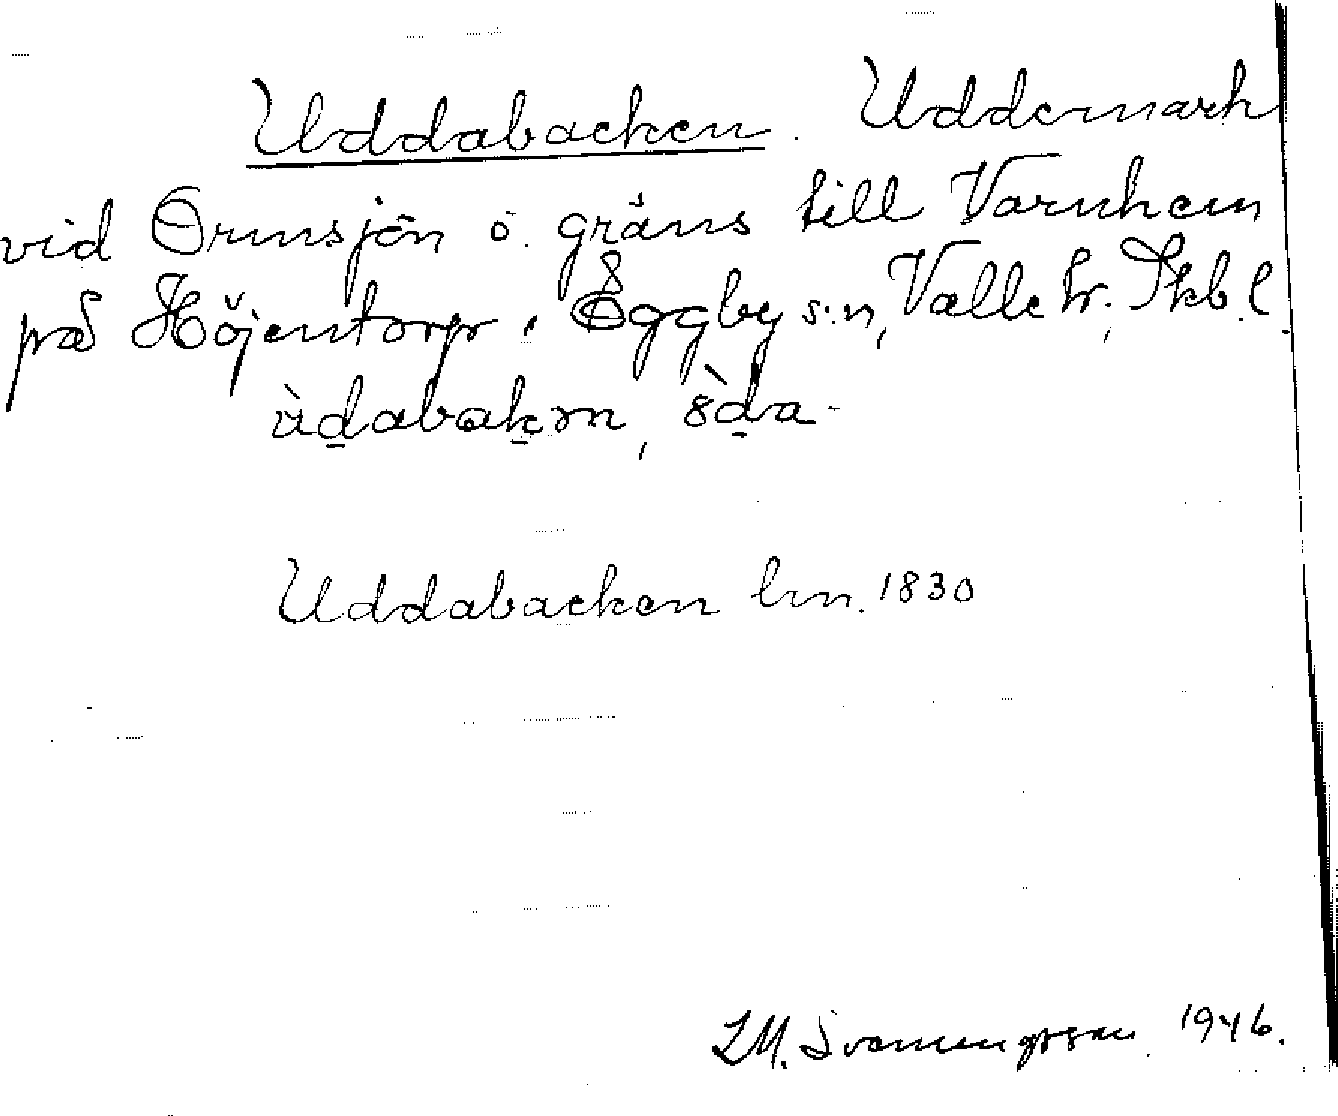 Uddabacken. Uddemark
vid Ormsjön ö. gräns till Varnhem
på Höjentorp, Eggby s:n, Valle hr, Skb. l.
ùdabakən, òda
Uddabacken lm. 1830
LM. Svanungsson. 1946.